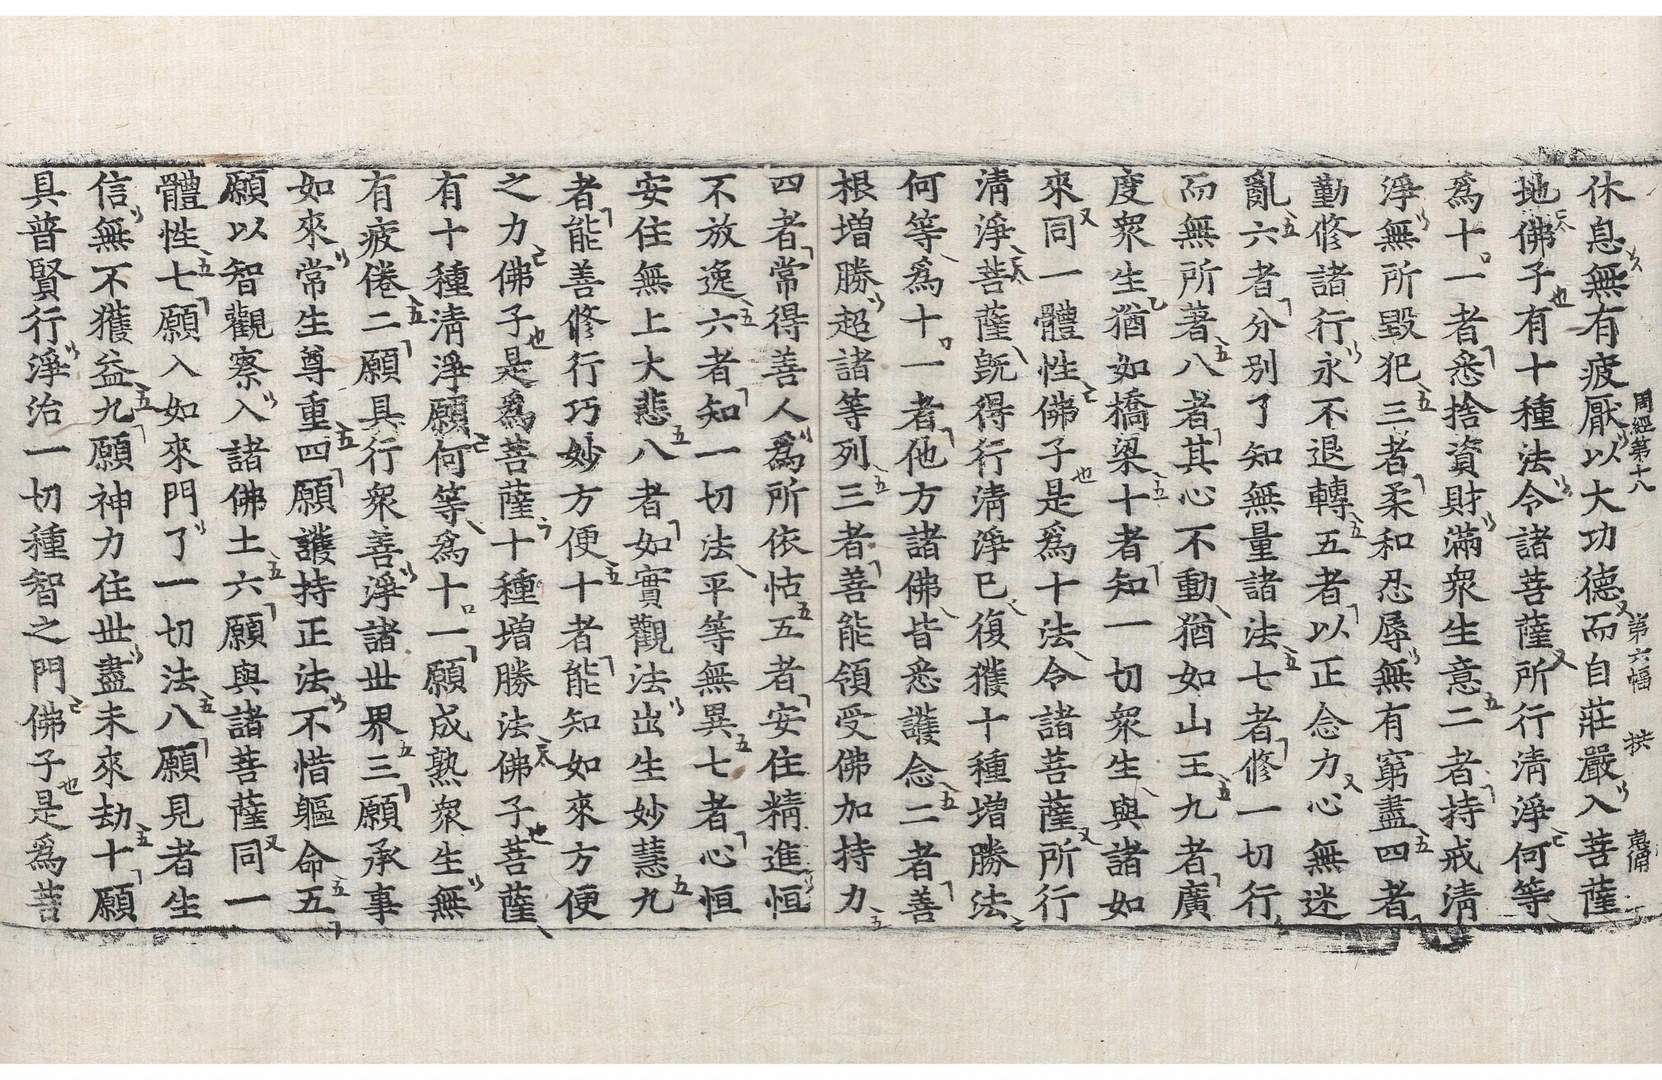 休息無有疲厭以大功德而自莊嚴入菩薩
周經第十八 第六幅 拱
地佛子有十種法令諸菩薩所行清淨何等
爲十一者悉捨資財滿衆生意二者持戒清
淨無所毀犯三者柔和忍辱無有窮盡四者
勤修諸行永不退轉五者以正念力心無迷
亂六者分別了知無量諸法七者修一切行
而無所著八者其心不動猶如山王九者廣
度衆生猶如橋梁十者知一切衆生與諸如
來同一體性佛子是爲十法令諸菩薩所行
清淨菩薩旣得行清淨已復獲十種增勝法
何等爲十一者他方諸佛皆悉護念二者善
根增勝超諸等列三者善能領受佛加持力
四者常得善人爲所依怙五者安住精進恒
不放逸六者知一切法平等無異七者心恒
安住無上大悲八者如實觀法出生妙慧九
者能善修行巧妙方便十者能知如來方便
之力佛子是爲菩薩十種增勝法佛子菩薩
有十種清淨願何等爲十一願成熟衆生無
有疲倦二願具行衆善淨諸世界三願承事
如來常生尊重四願護持正法不惜軀命五
願以智觀察入諸佛土六願與諸菩薩同一
體性七願入如來門了一切法八願見者生
信無不獲益九願神力住世盡未來劫十願
具普賢行淨治一切種智之門佛子是爲菩